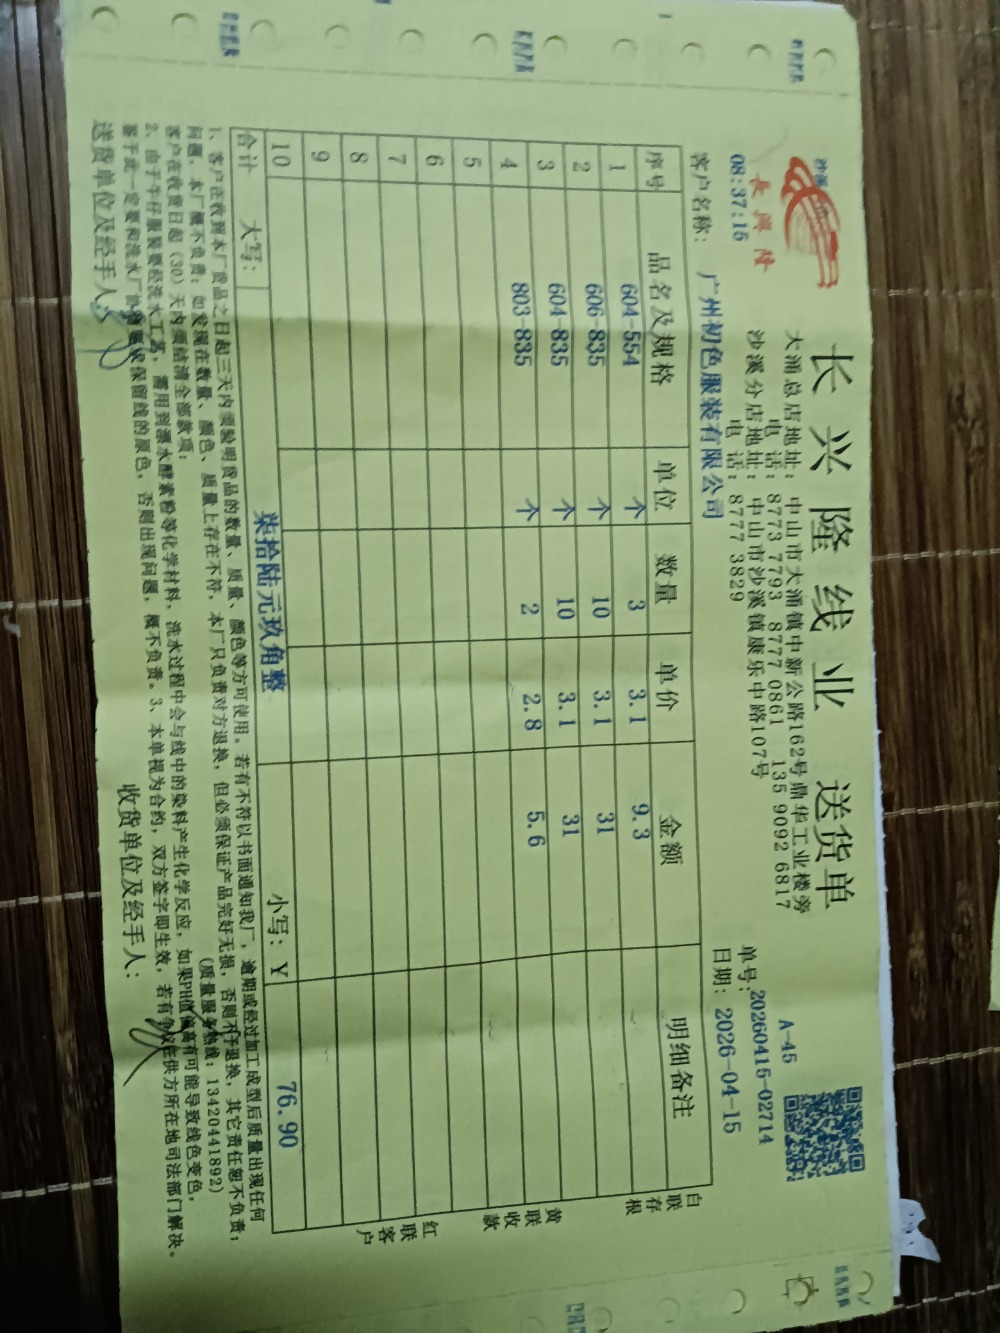 沙溪
長興隆
08:37:15
长兴隆线业 送货单
大涌总店地址：中山市大涌镇中新公路162号鼎华工业楼旁
电 话：8773 7793 8777 0861 135 9092 6817
沙溪分店地址：中山市沙溪镇康乐中路107号
电 话：8777 3829
A-45
单号：20260415-02714
日期：2026-04-15
客户名称：广州初色服装有限公司
序号 品名及规格 单位 数量 单价 金额 明细备注
1 604-554 个 3 3.1 9.3
2 606-835 个 10 3.1 31
3 604-835 个 10 3.1 31
4 803-835 个 2 2.8 5.6
5
6
7
8
9
10
合计 大写：柒拾陆元玖角整 小写：¥ 76.90
白联存根
黄联收款
红联客户
1、客户在收到本厂货品之日起三天内须验明货品的数量、质量、颜色等方可使用。若有不符以书面通知我厂，逾期或经过加工成型后质量出现任何
问题，本厂概不负责；如发现在数量、颜色、质量上存在不符，本厂只负责对方退换，但必须保证产品完好无损，否则不予退换，其它责任恕不负责；
客户在收货日起（30）天内须结清全部款项； （质量服务热线：13420441892）
2、由于牛仔服装要经洗水工艺，需用到漂水酵素粉等化学材料，洗水过程中会与线中的染料产生化学反应，如果PH值偏高有可能导致线色变色，
鉴于此一定要和洗水厂协商要求保留线的颜色，否则出现问题，概不负责。3、本单视为合约，双方签字即生效，若有争议在供方所在地司法部门解决。
送货单位及经手人： 收货单位及经手人：